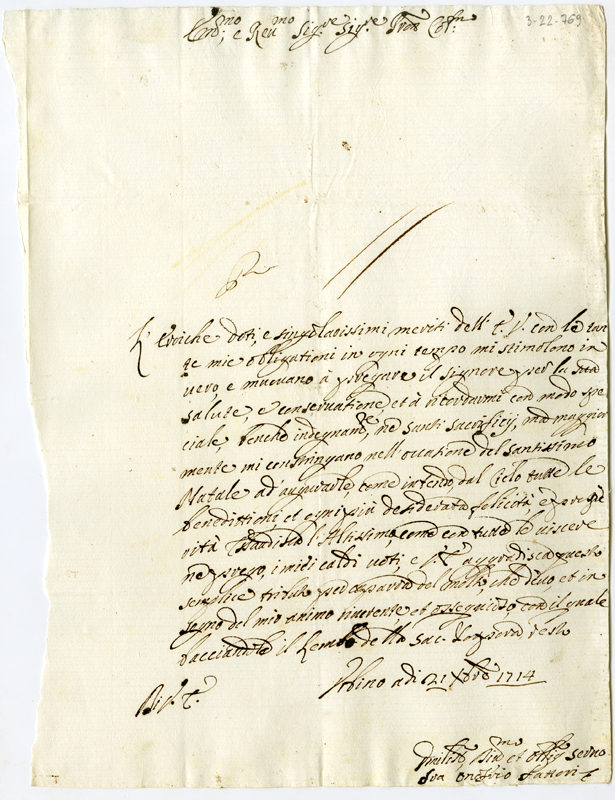 3-22-769
e Reu.mo Sig.re Sig.re
L'eroiche doti, e singolarissimi meriti dell' E. V. con le tan
te mie obligationi in ogni tempo mi stimolono in
uero, e muouano à pregare il Signore per la sua
salute, e conseruatione, et à ricordarmi con modo spe
ciale, benche indegnam.te, ne Santi Sacrificij, ma maggior
mente mi constringano nell'occatione del Santissimo
Natale ad'augurarle, come intendo, dal Cielo tutte le
benedittioni, et ogni più desiderata felicità, e prospe
rità. l'Altissimo, come con tutte le viscere
ne prego, i miei caldi uoti, e questo
semplice tributo per caparra del molto, che deuo, et in
segno del mio animo riuerente, et ossequioso, con il quale
bacciandole il Lembo della Sac. Porpora resto
Urbino adi 21 Xbre 1714
Di V. E.
Humiliss. Diu.mo et Seruo
Fra Onofrio Fattori